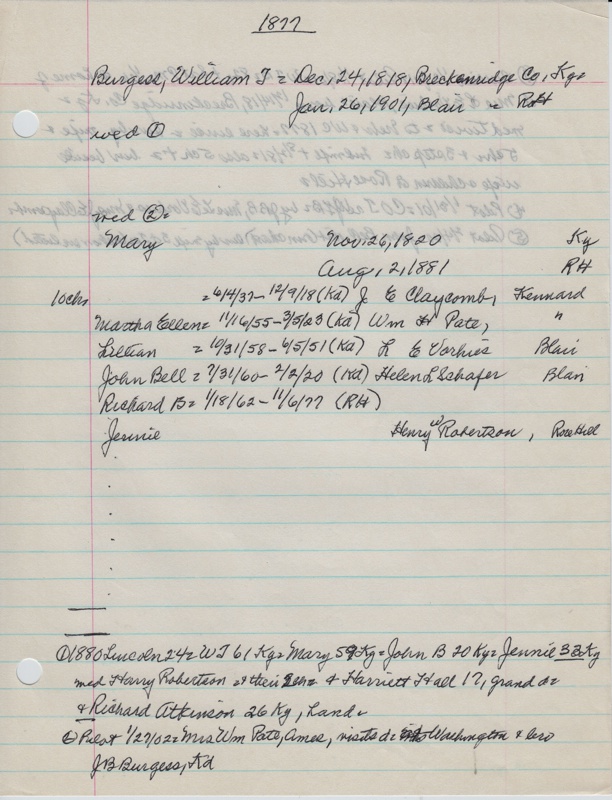 1877
Burgess, William T = Dec, 24, 1818, Breckenridge Co, Ky =
Jan, 26, 1901, Blair = RH
wed ①
wed ② =
Mary Nov, 26, 1820 Ky
Aug, 2, 1881 RH
10chs = 6/4/37 - 12/9/18 (Kd) J E Claycomb, Kennard
Martha Ellen = 11/16/55 - 3/5/23 (Kd) Wm H Pate, "
Lillian = 10/31/58 - 6/5/51 (Kd) L E Vorhies Blair
John Bell = 7/31/60 - 2/2/20 (Kd) Helen L Schafer Blair
Richard B = 1/18/62 - 11/6/77 (RH)
Jennie Henry W Robertson, Rose Hill
① 1880 Lincoln 24 = WT 61 Ky = Mary 59 Ky = John B 20 Ky = Jennie 33 Ky
med Harry Robertson & their 2ch = & Harriett Hall 17, grand d =
& Richard Atkinson 26 Ky, hand =
Pilot 1/27/02 = Mrs Wm Pate, Ames, visits d = Washington & bro
J B Burgess, Kd